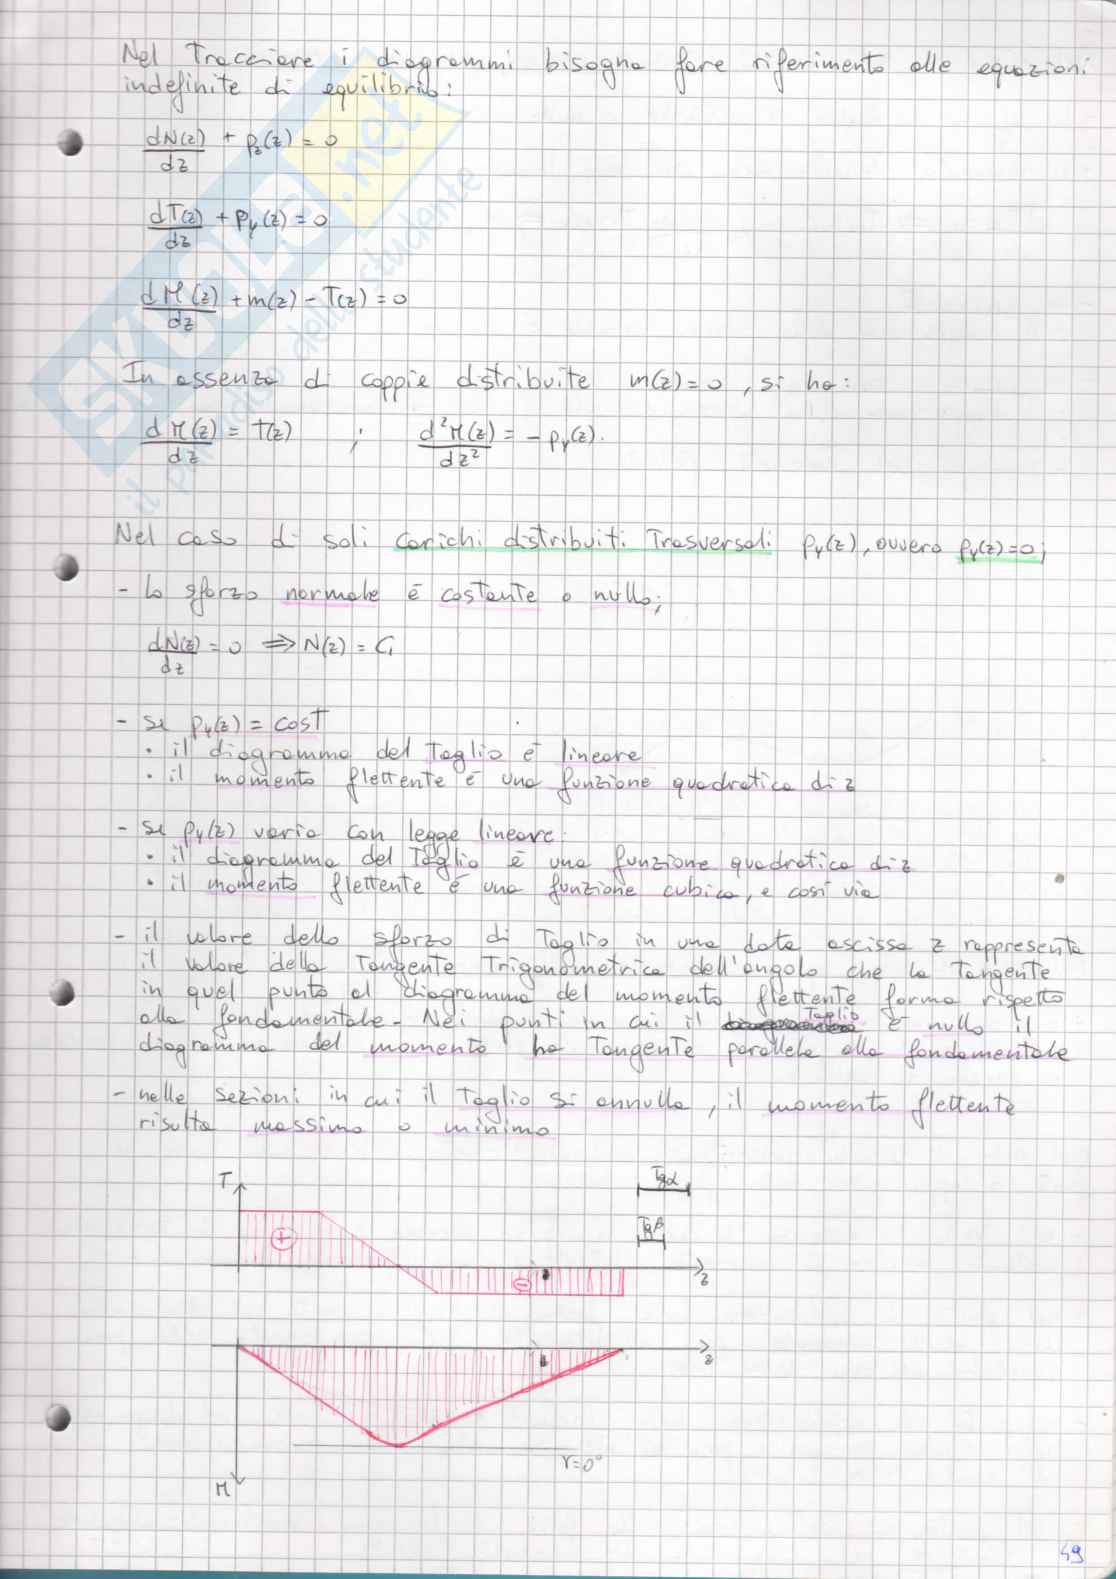 Nel Tracciare i diagrammi bisogna fare riferimento alle equazioni
indefinite di equilibrio:
dN(z)/dz + pz(z) = 0
dT(z)/dz + py(z) = 0
dM(z)/dz + m(z) - T(z) = 0
In assenza di coppie distribuite m(z) = 0, si ha:
dM(z)/dz = T(z) ; d²M(z)/dz² = - py(z).
Nel caso di soli carichi distribuiti Trasversali py(z), ovvero py(z)=0;
- lo sforzo normale è costante o nullo;
dN(z)/dz = 0 => N(z) = C1
- se py(z) = cosT
• il diagramma del Taglio è lineare
• il momento flettente è una funzione quadratica di z
- se py(z) varia con legge lineare:
• il diagramma del Taglio è una funzione quadratica di z
• il momento flettente è una funzione cubica, e così via
- il valore dello sforzo di Taglio in una data ascissa z rappresenta
il valore della Tangente Trigonometrica dell'angolo che la Tangente
in quel punto al diagramma del momento flettente forma rispetto
alla fondamentale - Nei punti in cui il Taglio è nullo il
diagramma del momento ha Tangente parallela alla fondamentale
- nelle sezioni in cui il Taglio si annulla, il momento flettente
risulta massimo o minimo
T
Tgα
Tgβ
+
-
z
z
γ=0°
M
49
SKUOLA.net
il paradiso dello studente